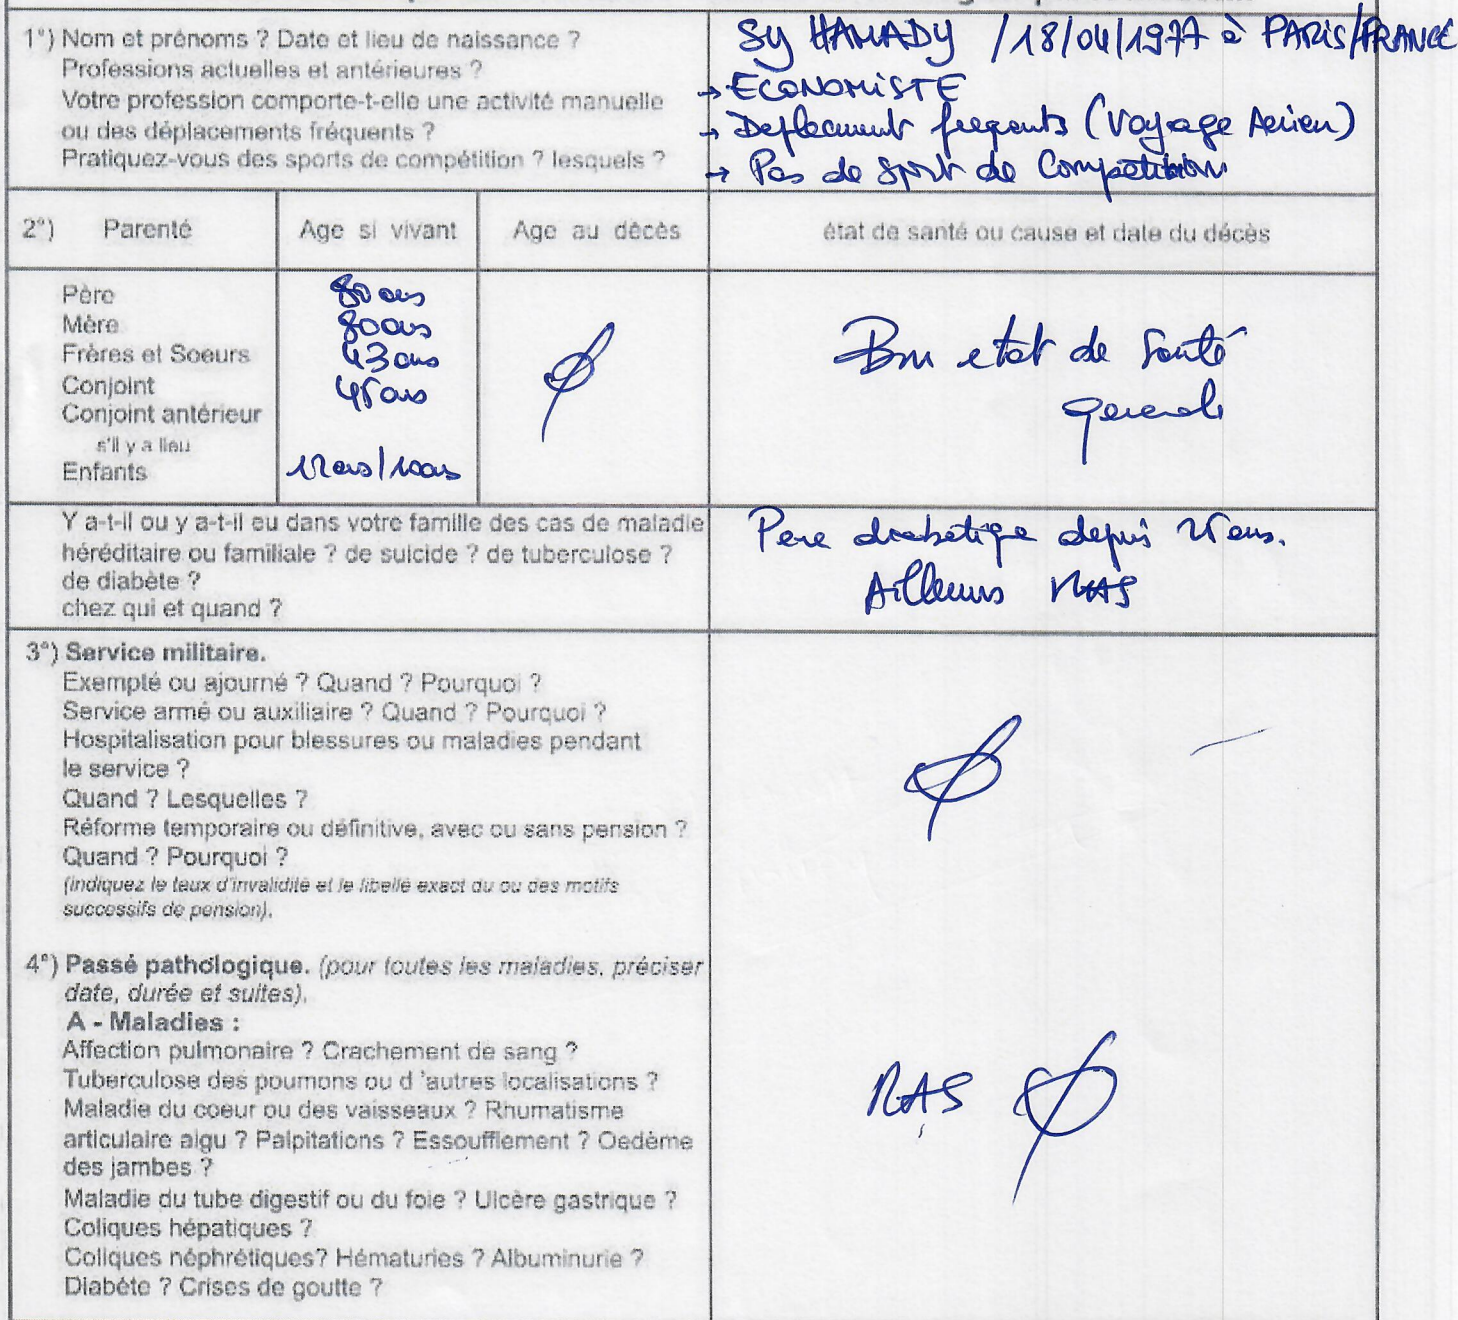 1°) Nom et prénoms ? Date et lieu de naissance ? Sy HAMADY / 18/04/1977 à PARIS/FRANCE
Professions actuelles et antérieures ? → ECONOMISTE
Votre profession comporte-t-elle une activité manuelle
ou des déplacements fréquents ? → Deplacement freqents (Voyage Aerien)
Pratiquez-vous des sports de compétition ? lesquels ? → Pas de Sport de Compétition
2°) Parenté Age si vivant Age au décès état de santé ou cause et date du décès
Père 80 ans
Mère 80 ans
Frères et Soeurs 43 ans
Conjoint 45 ans
Bon etat de Santé
Conjoint antérieur
generale
s'il y a lieu
Enfants 12 ans/10 ans
Y a-t-il ou y a-t-il eu dans votre famille des cas de maladie Pere diabetiqe depuis ans.
héréditaire ou familiale ? de suicide ? de tuberculose ?
de diabète ? Ailleurs RAS
chez qui et quand ?
3°) Service militaire.
Exempté ou ajourné ? Quand ? Pourquoi ?
Service armé ou auxiliaire ? Quand ? Pourquoi ?
Hospitalisation pour blessures ou maladies pendant
le service ?
Quand ? Lesquelles ?
Réforme temporaire ou définitive, avec ou sans pension ?
Quand ? Pourquoi ?
(indiquez le taux d'invalidité et le libellé exact du ou des motifs
successifs de pension).
4°) Passé pathologique. (pour toutes les maladies, préciser
date, durée et suites).
A - Maladies :
Affection pulmonaire ? Crachement de sang ?
Tuberculose des poumons ou d 'autres localisations ?
Maladie du coeur ou des vaisseaux ? Rhumatisme RAS
articulaire aigu ? Palpitations ? Essoufflement ? Oedème
des jambes ?
Maladie du tube digestif ou du foie ? Ulcère gastrique ?
Coliques hépatiques ?
Coliques néphrétiques? Hématuries ? Albuminurie ?
Diabète ? Crises de goutte ?